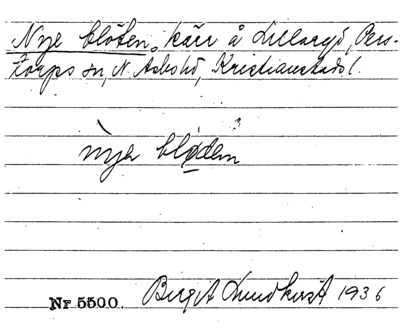 Nye blöten, kärr å Lillaryd, Pers-
torps sn, N. Åsbo hd, Kristianstads l.
nya blödèn
Nr 5500. Birgit Lundkvist 1936